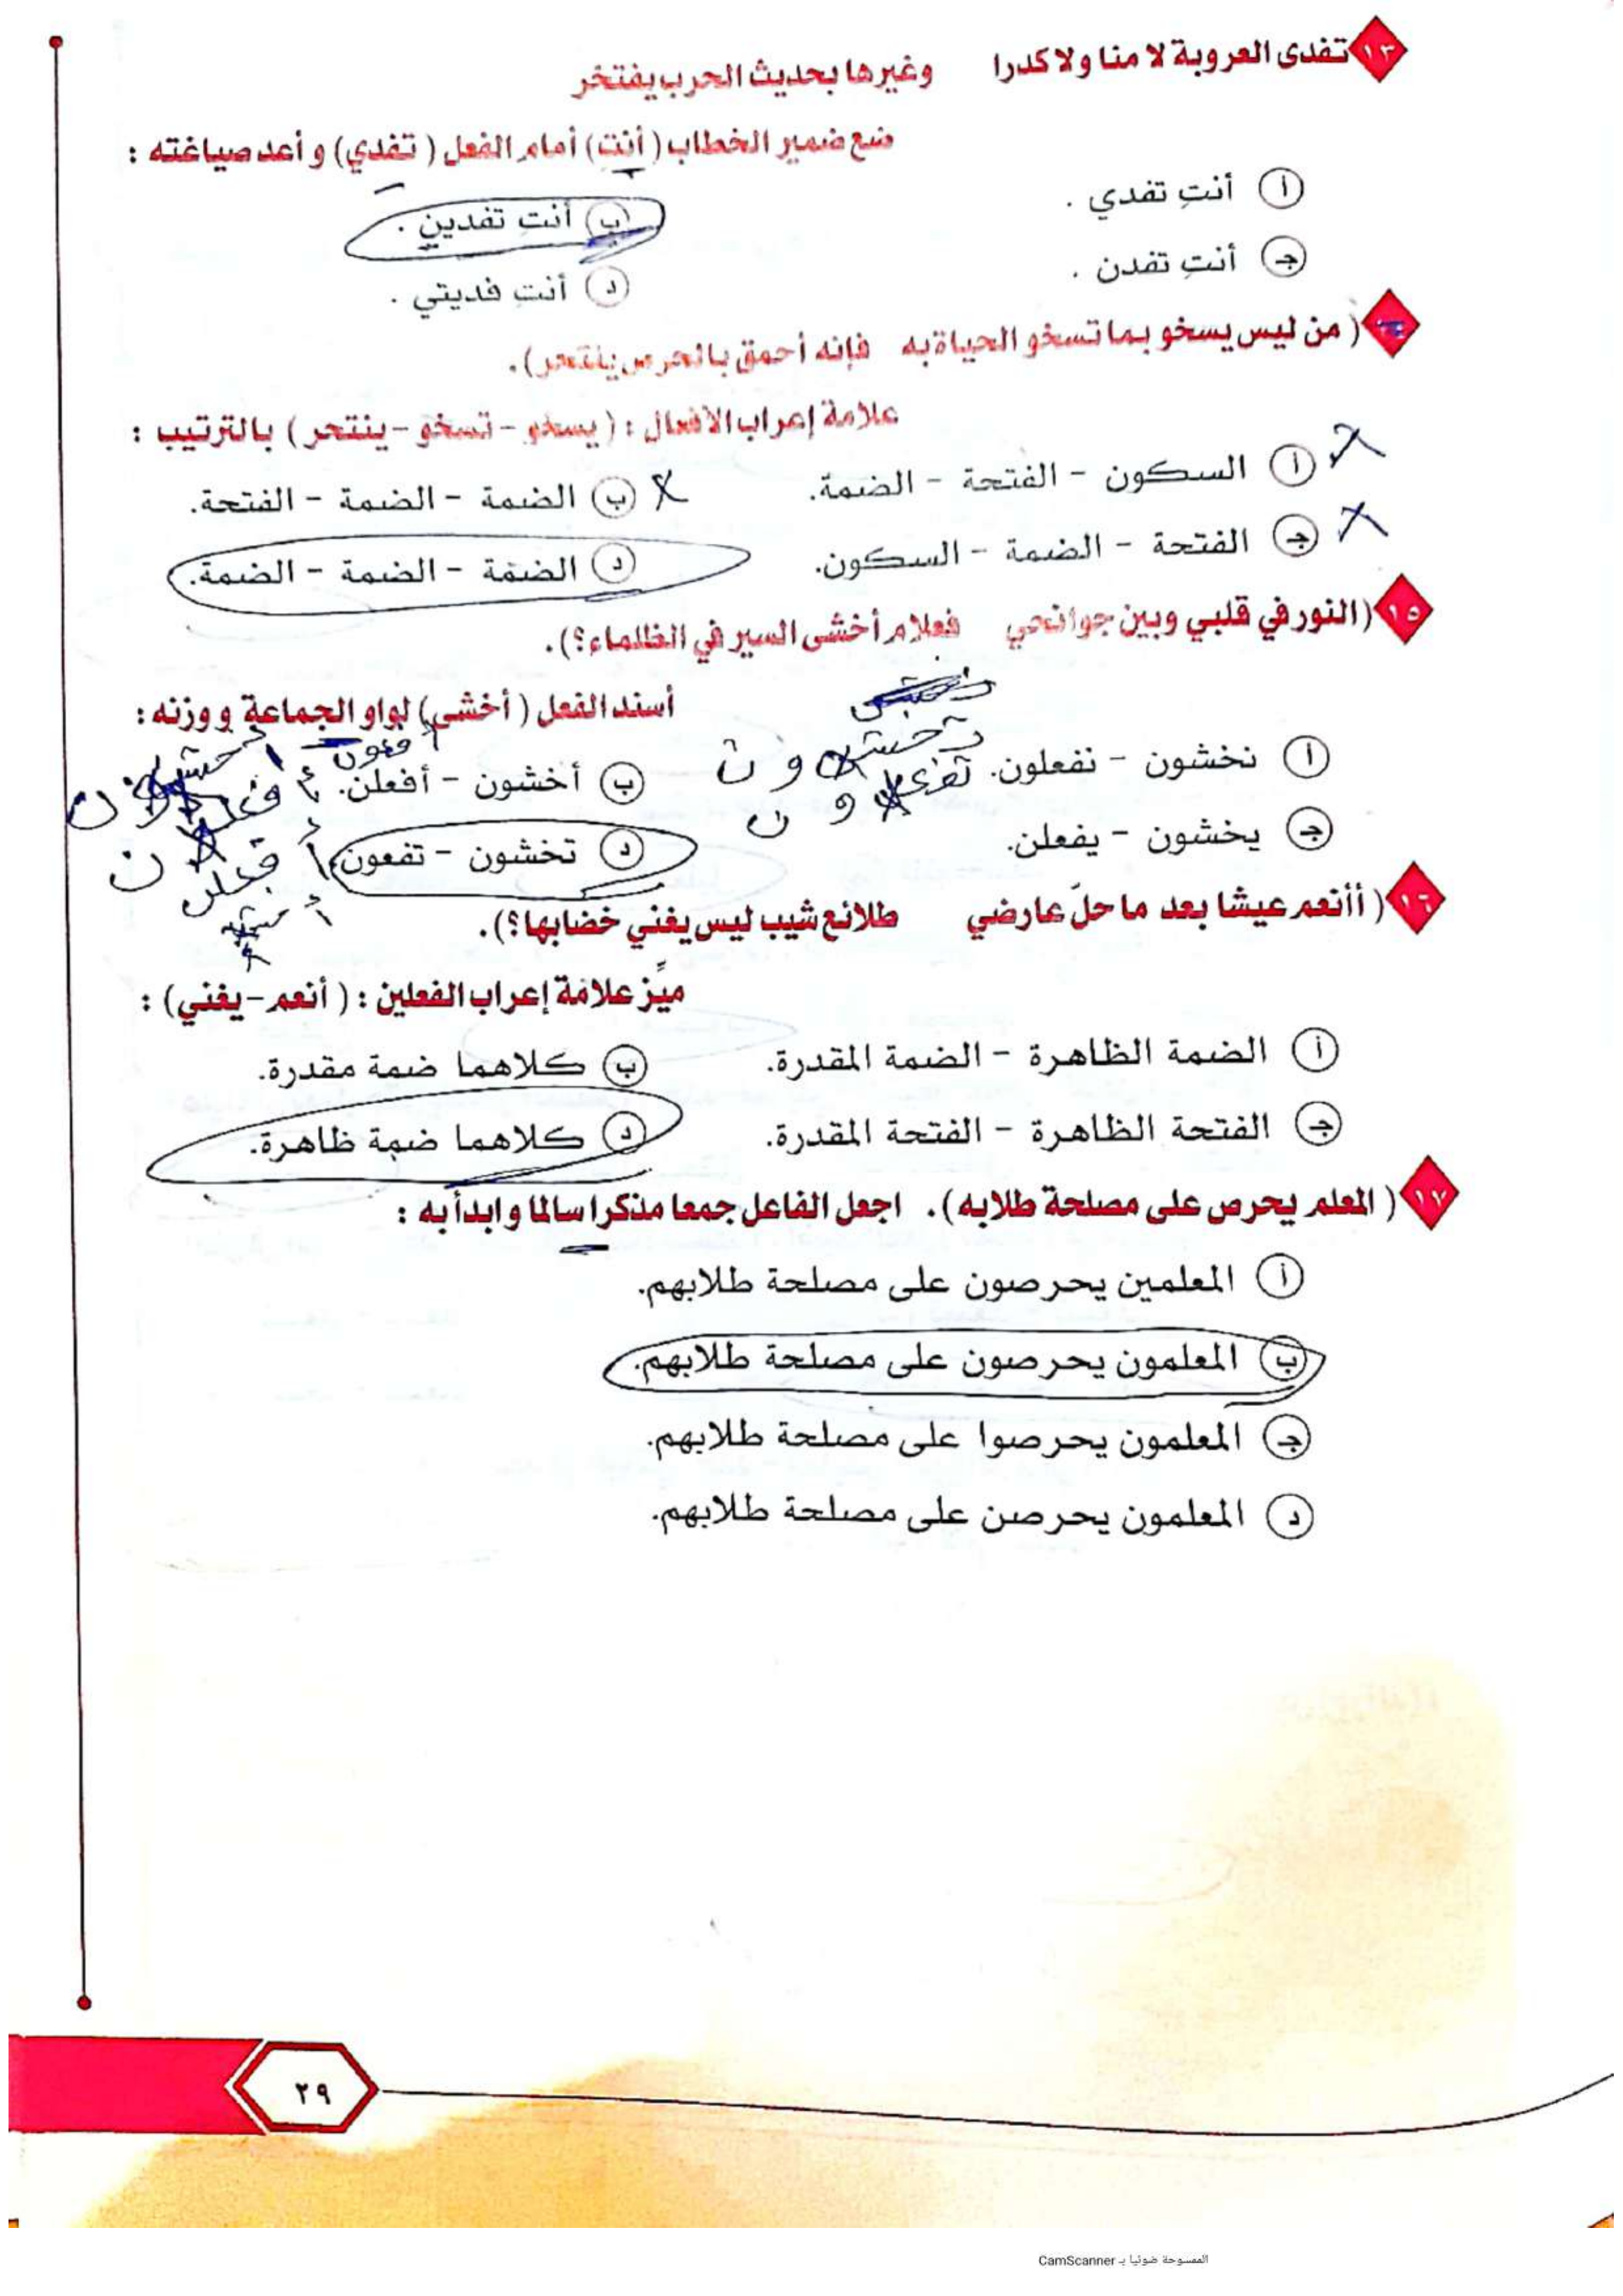 ١٣ تفدى العروبة لا منا ولا كدرا وغيرها بحديث الحرب يفتخر
ضع ضمير الخطاب (أنتِ) أمام الفعل (تفدي) و أعد صياغته :
أ أنتِ تفدي .
ب أنتِ تفدين .
ج أنتِ تفدن .
د أنتِ فديتي .
( من ليس يسخو بما تسخو الحياة به فإنه أحمق بالحرص ينتحر).
علامة إعراب الأفعال : ( يسخو - تسخو - ينتحر ) بالترتيب :
أ السكون - الفتحة - الضمة.
ب الضمة - الضمة - الفتحة.
ج الفتحة - الضمة - السكون.
د الضمة - الضمة - الضمة.
١٥ (النور في قلبي وبين جوانحي فعلام أخشى السير في الظلماء؟).
أسند الفعل ( أخشى) لواو الجماعة ووزنه :
أ نخشون - نفعلون.
ب أخشون - أفعلن.
ج يخشون - يفعلن.
د تخشون - تفعون
١٦ ( أأنعم عيشا بعد ما حلَ عارضي طلائع شيب ليس يغني خضابها؟).
ميِّز علامة إعراب الفعلين : ( أنعم - يغني) :
أ الضمة الظاهرة - الضمة المقدرة.
ب كلاهما ضمة مقدرة.
ج الفتحة الظاهرة - الفتحة المقدرة.
د كلاهما ضمة ظاهرة.
١٧ ( المعلم يحرص على مصلحة طلابه ). اجعل الفاعل جمعا مذكرا سالما وابدأ به :
أ المعلمين يحرصون على مصلحة طلابهم.
ب المعلمون يحرصون على مصلحة طلابهم.
ج المعلمون يحرصوا على مصلحة طلابهم.
د المعلمون يحرصن على مصلحة طلابهم.
٢٩
الممسوحة ضوئيا بـ CamScanner